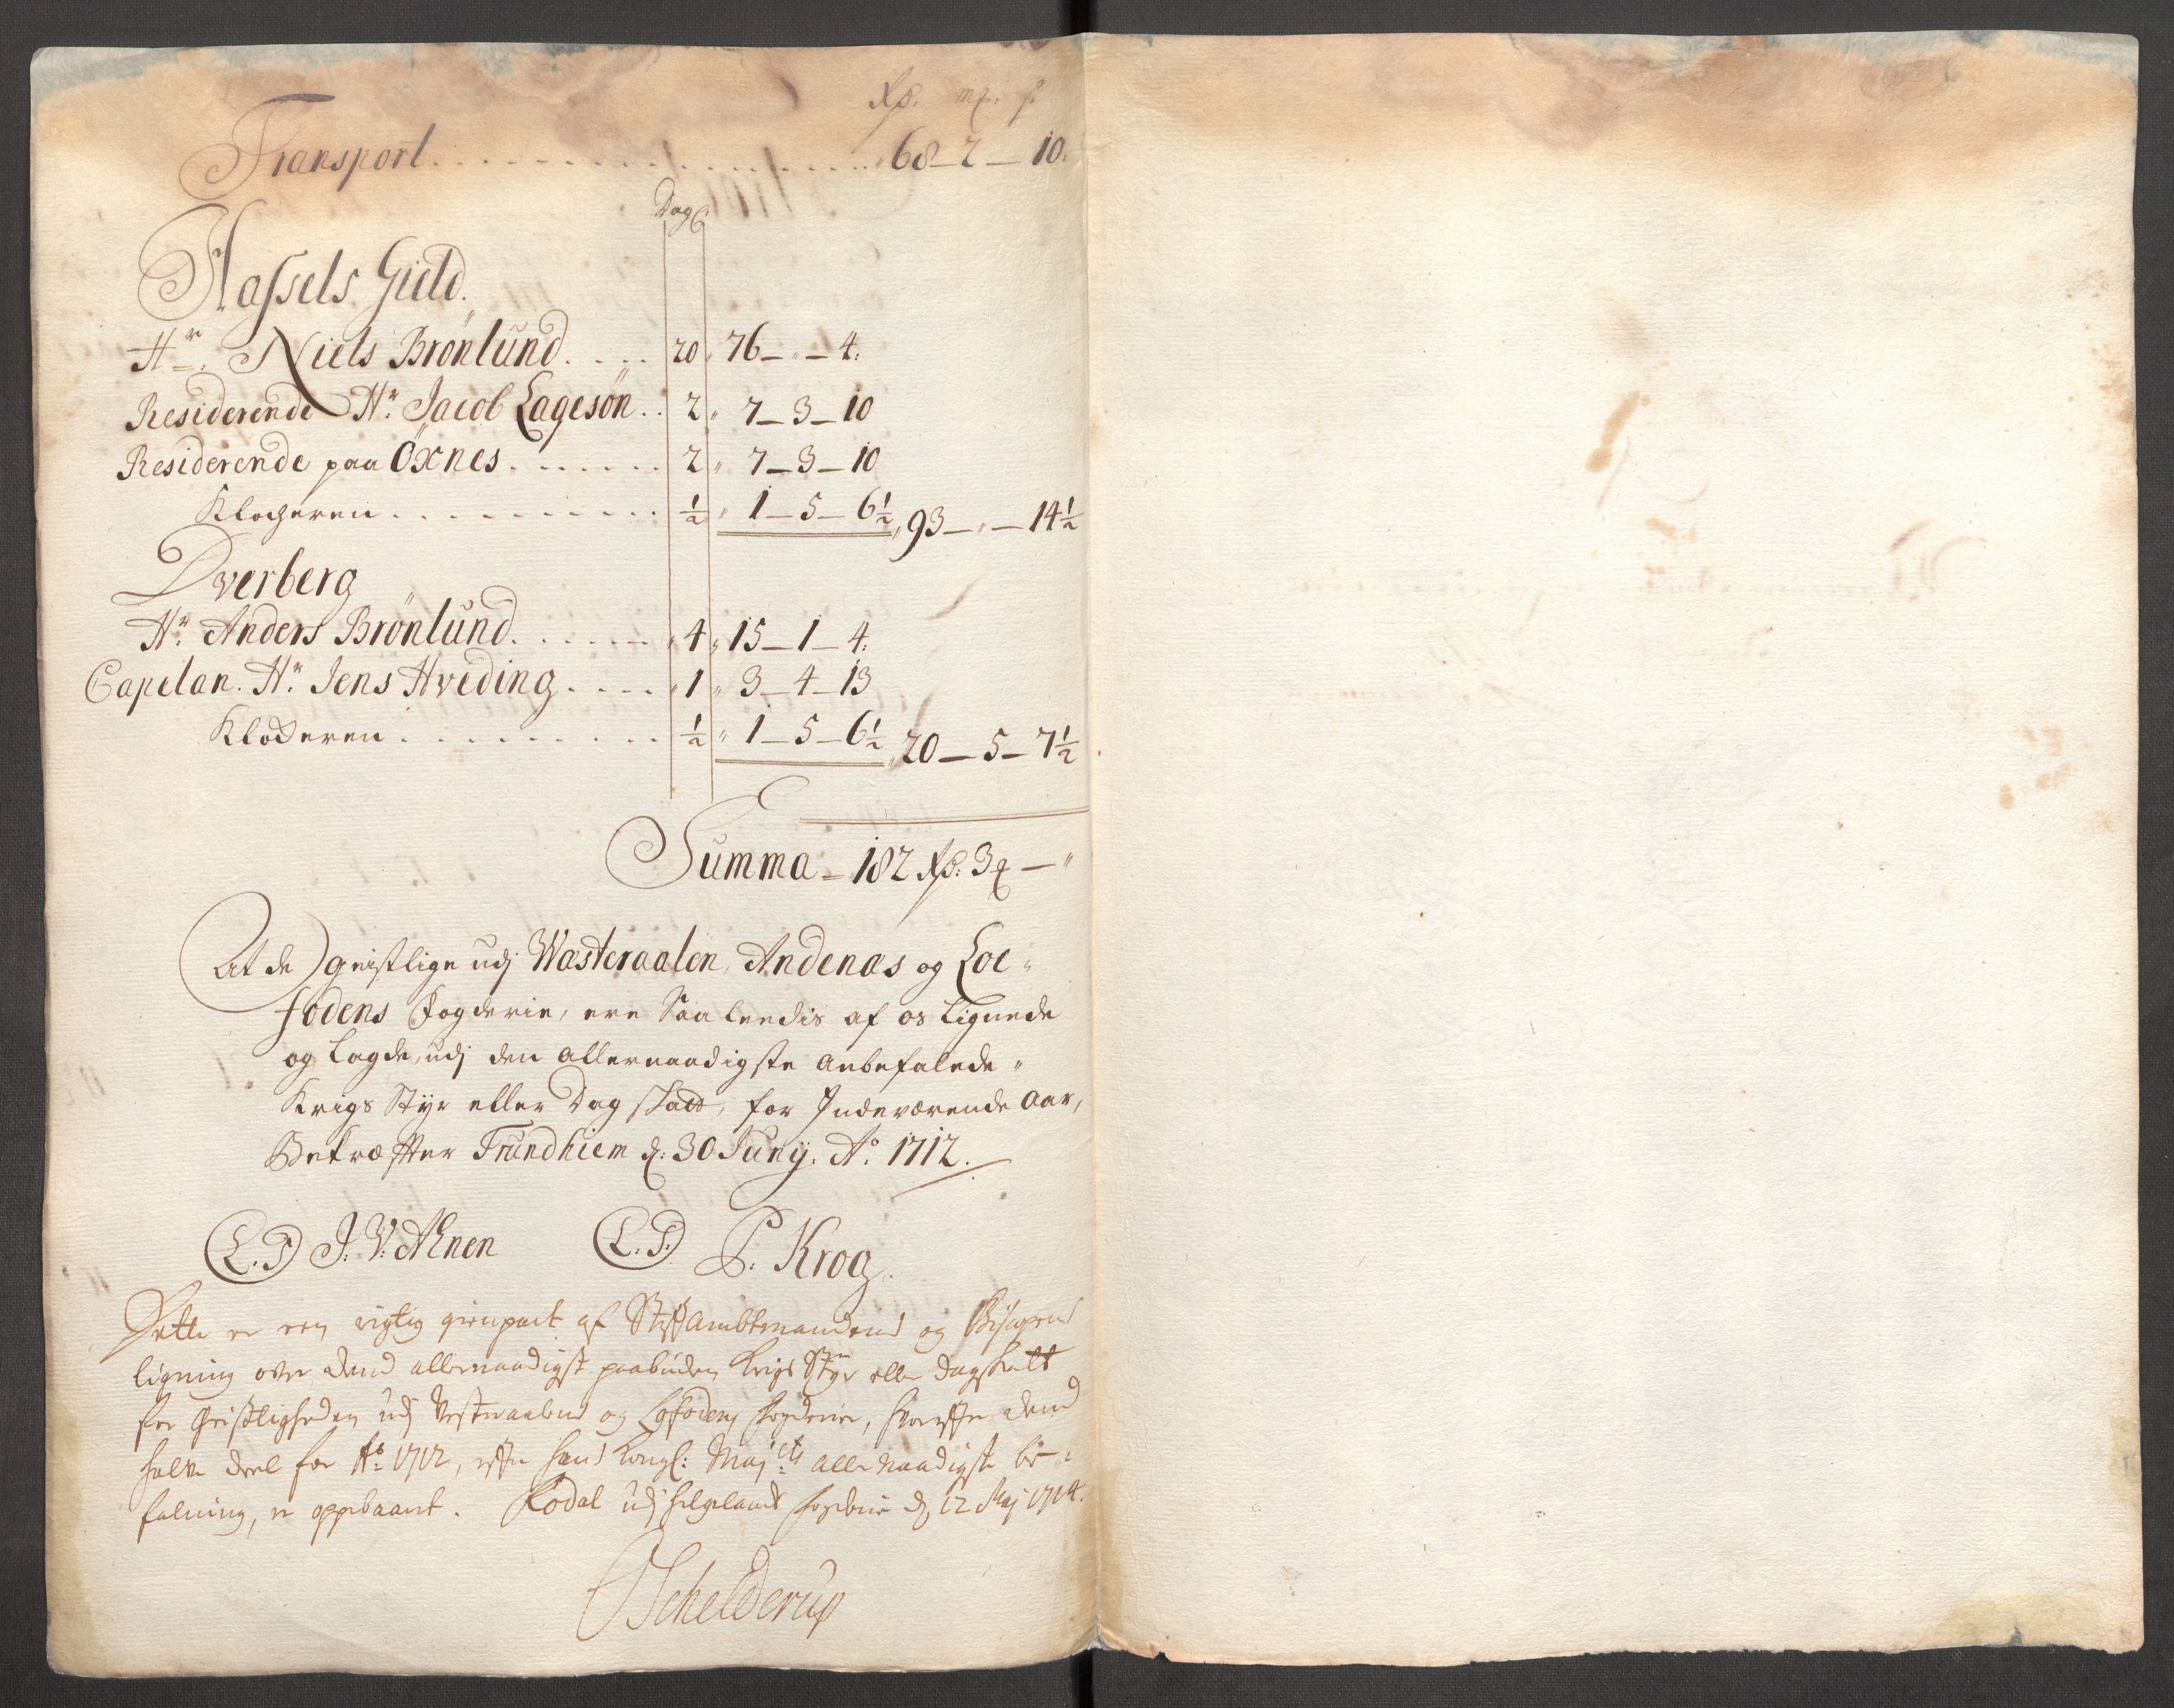 Rd. mk. s.
Transport . . . . . . . . . . . . . . . 68 – 2 – 10.
Dage
Hassels Gield.
Hr. Niels Brönlund . . . . 20 76 – „ – 4.
Residerende Hr. Jacob Lagesön . . 2 „ 7 – 3 – 10
Residerende paa Öxnes . . . . . . . 2 „ 7 – 3 – 10
Klocheren . . . . . . . . . . ½ „ 1 – 5 – 6½ „ 93 – „ – 14½
Dverberg
Hr. Anders Brönlund . . . . . . „ 4 „ 15 – 1 – 4.
Capelan. Hr. Jens Hveding . . . . „ 1 „ 3 – 4 – 13
Klockeren . . . . . . . . . ½ „ 1 – 5 – 6½ „ 20 – 5 – 7½
Summa – 182 Rd: 3 mk – „
At de geistlige udj Wæsteraalen, Andenæs og Loe-
fodens Fogderie, ere Saaleedis af os Lignede
og Lagde, udj den allernaadigste anbefalede
Krigs Styr eller Dag skatt, for Indeværende Aar,
Bekræffter Trundhiem d: 30 Juny. Ao. 1712.
(L.S) J: V: Ahnen (L.S.) P. Krog.
Dette er een rigtig gienpart af Stiftambtmandens og Bispens
ligning over dend allernaadigst paabudne Krigs Styr eller Dagskatt
for Geistligheden udj Vesteraalens og Lofodens fogderier, hvorefter dend
halve deel for Ao 1712, efter hans Kongl: Maj:ts allernaadigste be-
falning, er oppebaaret. Rodal udj Helgelands fogderie d. 12 Maj 1714.
Schelderup